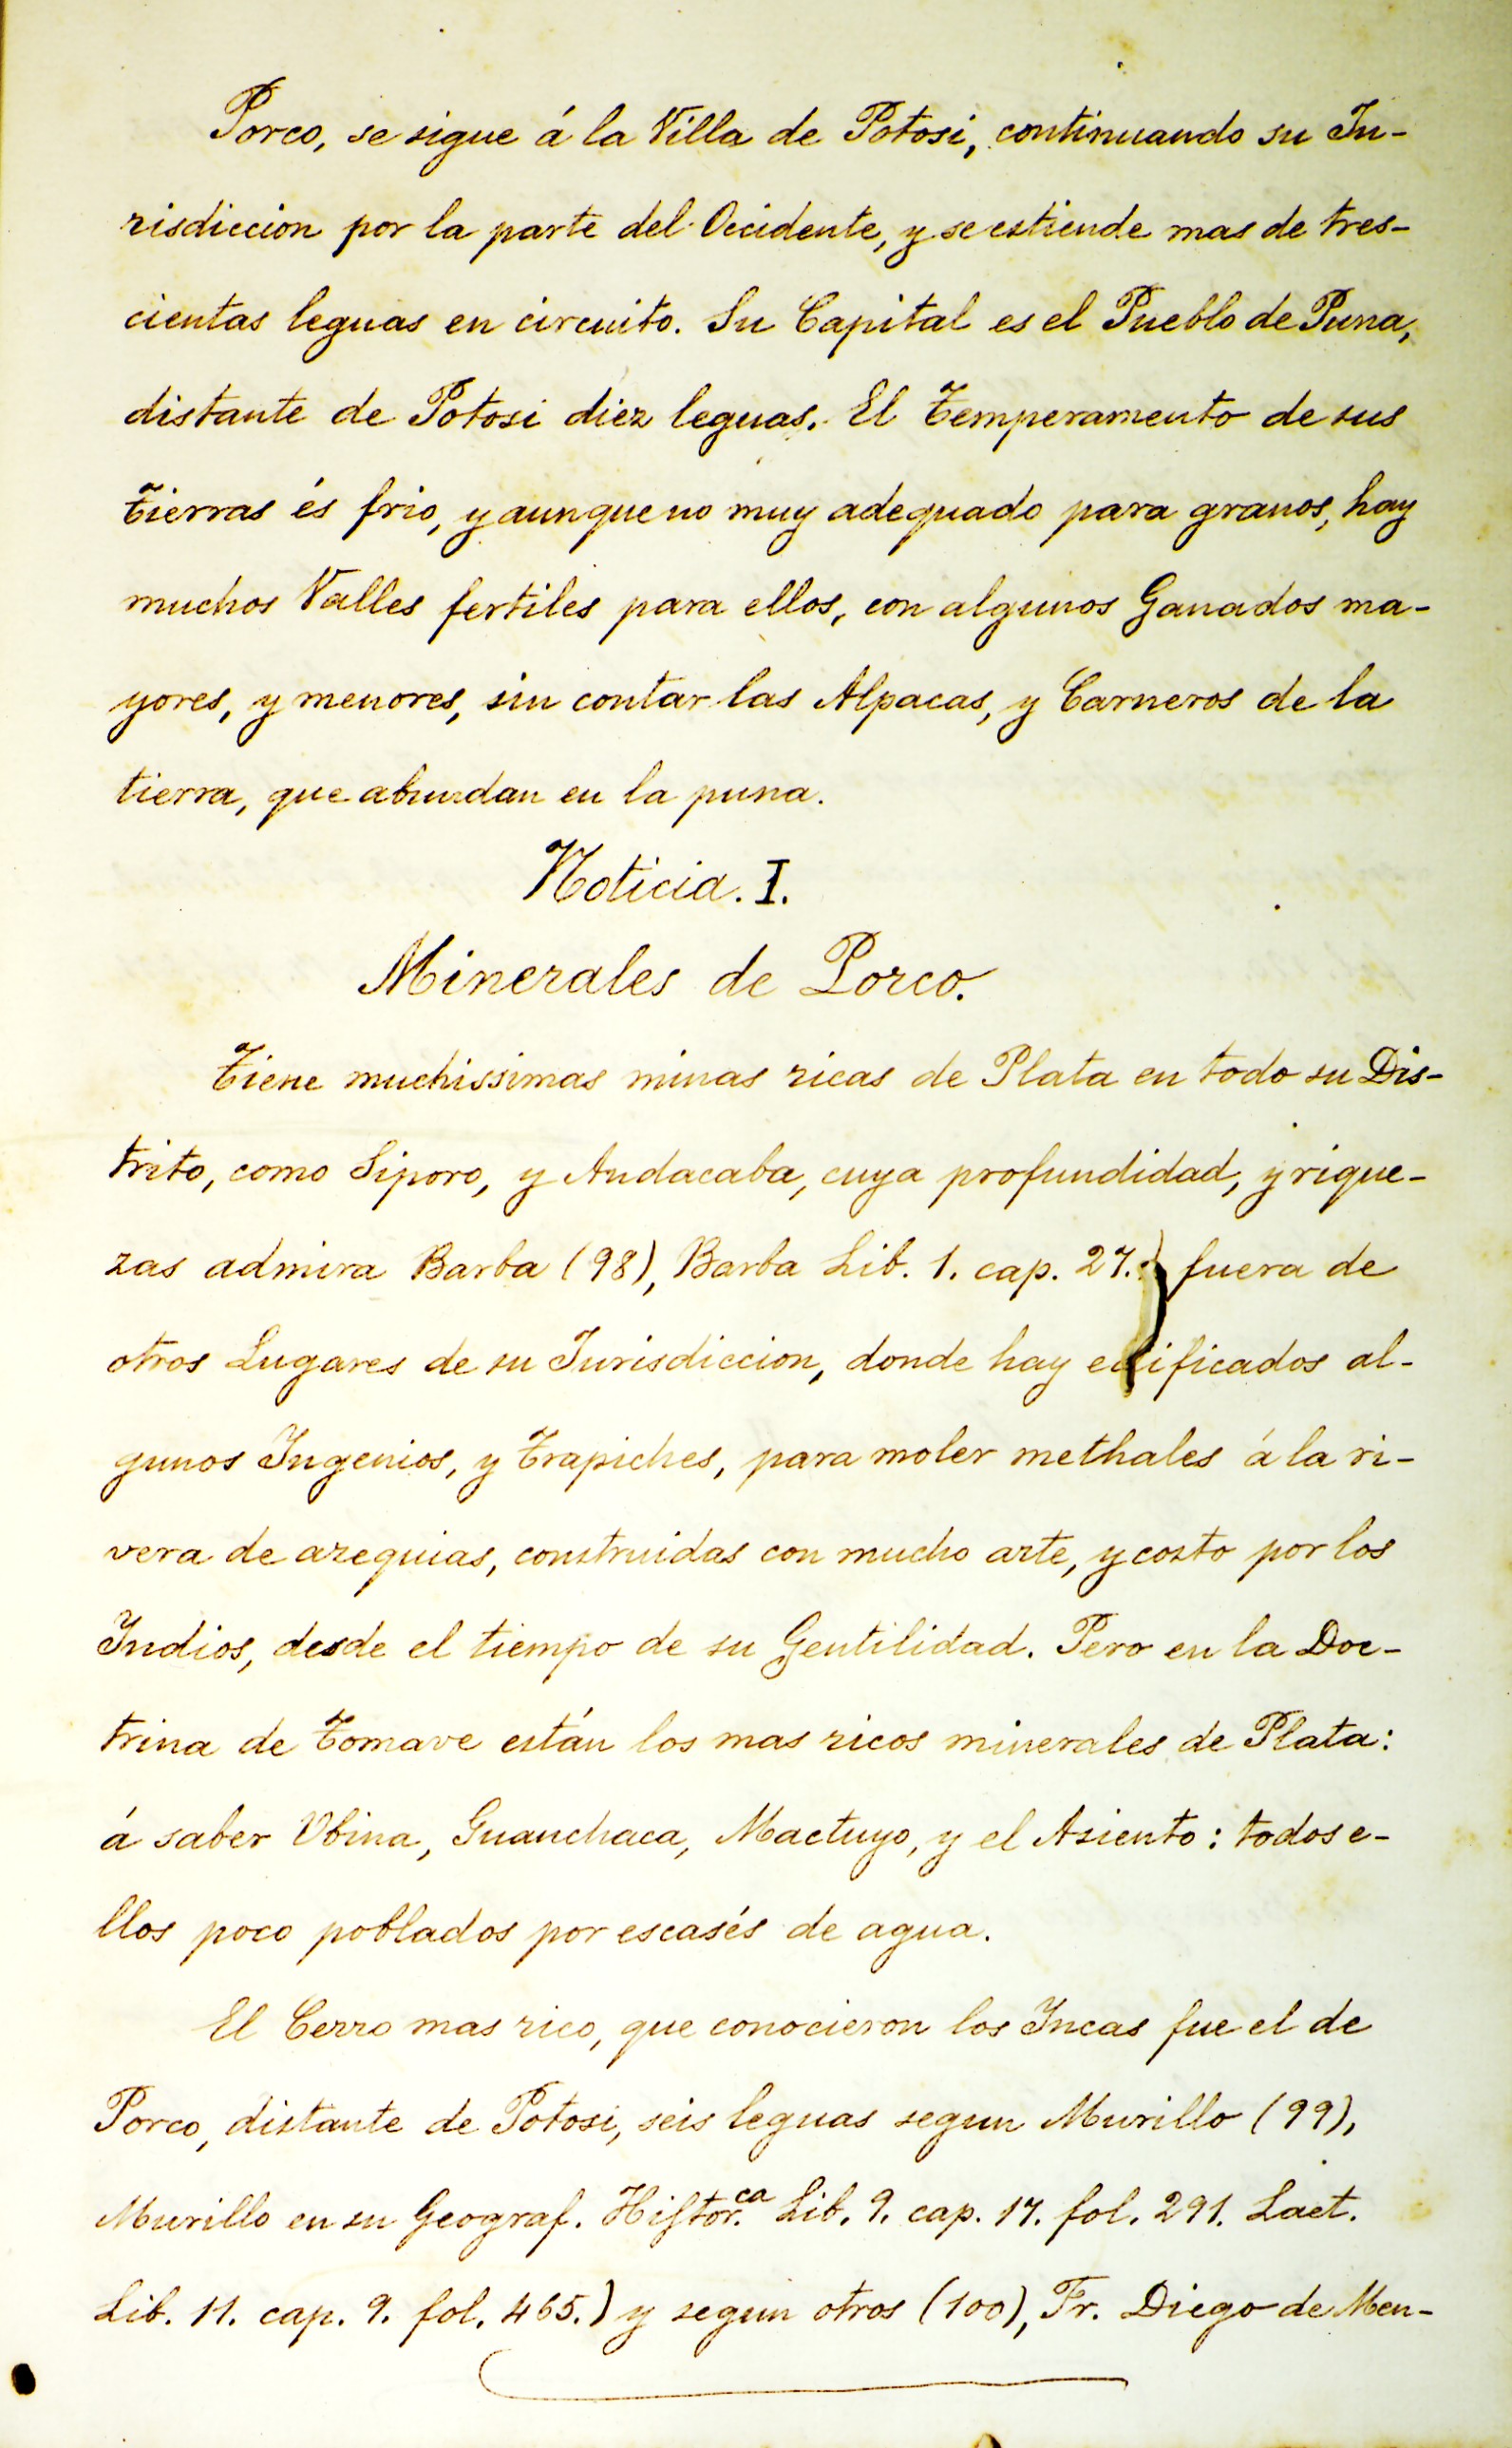 Porco, se sigue á la Villa de Potosi, continuando su Ju-
risdiccion por la parte del Occidente, y se estiende mas de tres-
cientas leguas en circuito. Su Capital es el Pueblo de Puna,
distante de Potosi diez leguas. El Temperamento de sus
Tierras és frio, y aunque no muy adequado para granos, hay
muchos Valles fertiles para ellos, con algunos Ganados ma-
yores, y menores, sin contar las Alpacas, y Carneros de la
tierra, que abundan en la puna.
Noticia. I.
Minerales de Porco.
Tiene muchissimas minas ricas de Plata en todo su Dis-
trito, como Siporo, y Andacaba, cuya profundidad, y rique-
zas admira Barba (98), Barba Lib. 1. cap. 27.) fuera de
otros Lugares de su Jurisdiccion, donde hay edificados al-
gunos Ingenios, y Trapiches, para moler methales á la ri-
vera de azequias, construidas con mucho arte, y costo por los
Indios, desde el tiempo de su Gentilidad. Pero en la Doc-
trina de Tomave están los mas ricos minerales de Plata:
á saber Ubina, Guanchaca, Mactuyo, y el Asiento: todos e-
llos poco poblados por escasés de agua.
El Cerro mas rico, que conocieron los Incas fue el de
Porco, distante de Potosi, seis leguas segun Murillo (99),
Murillo en su Geograf. Histor.ca Lib. 9. cap. 17. fol. 291. Laet.
Lib. 11. cap. 9. fol. 465.) y segun otros (100), Fr. Diego de Men-